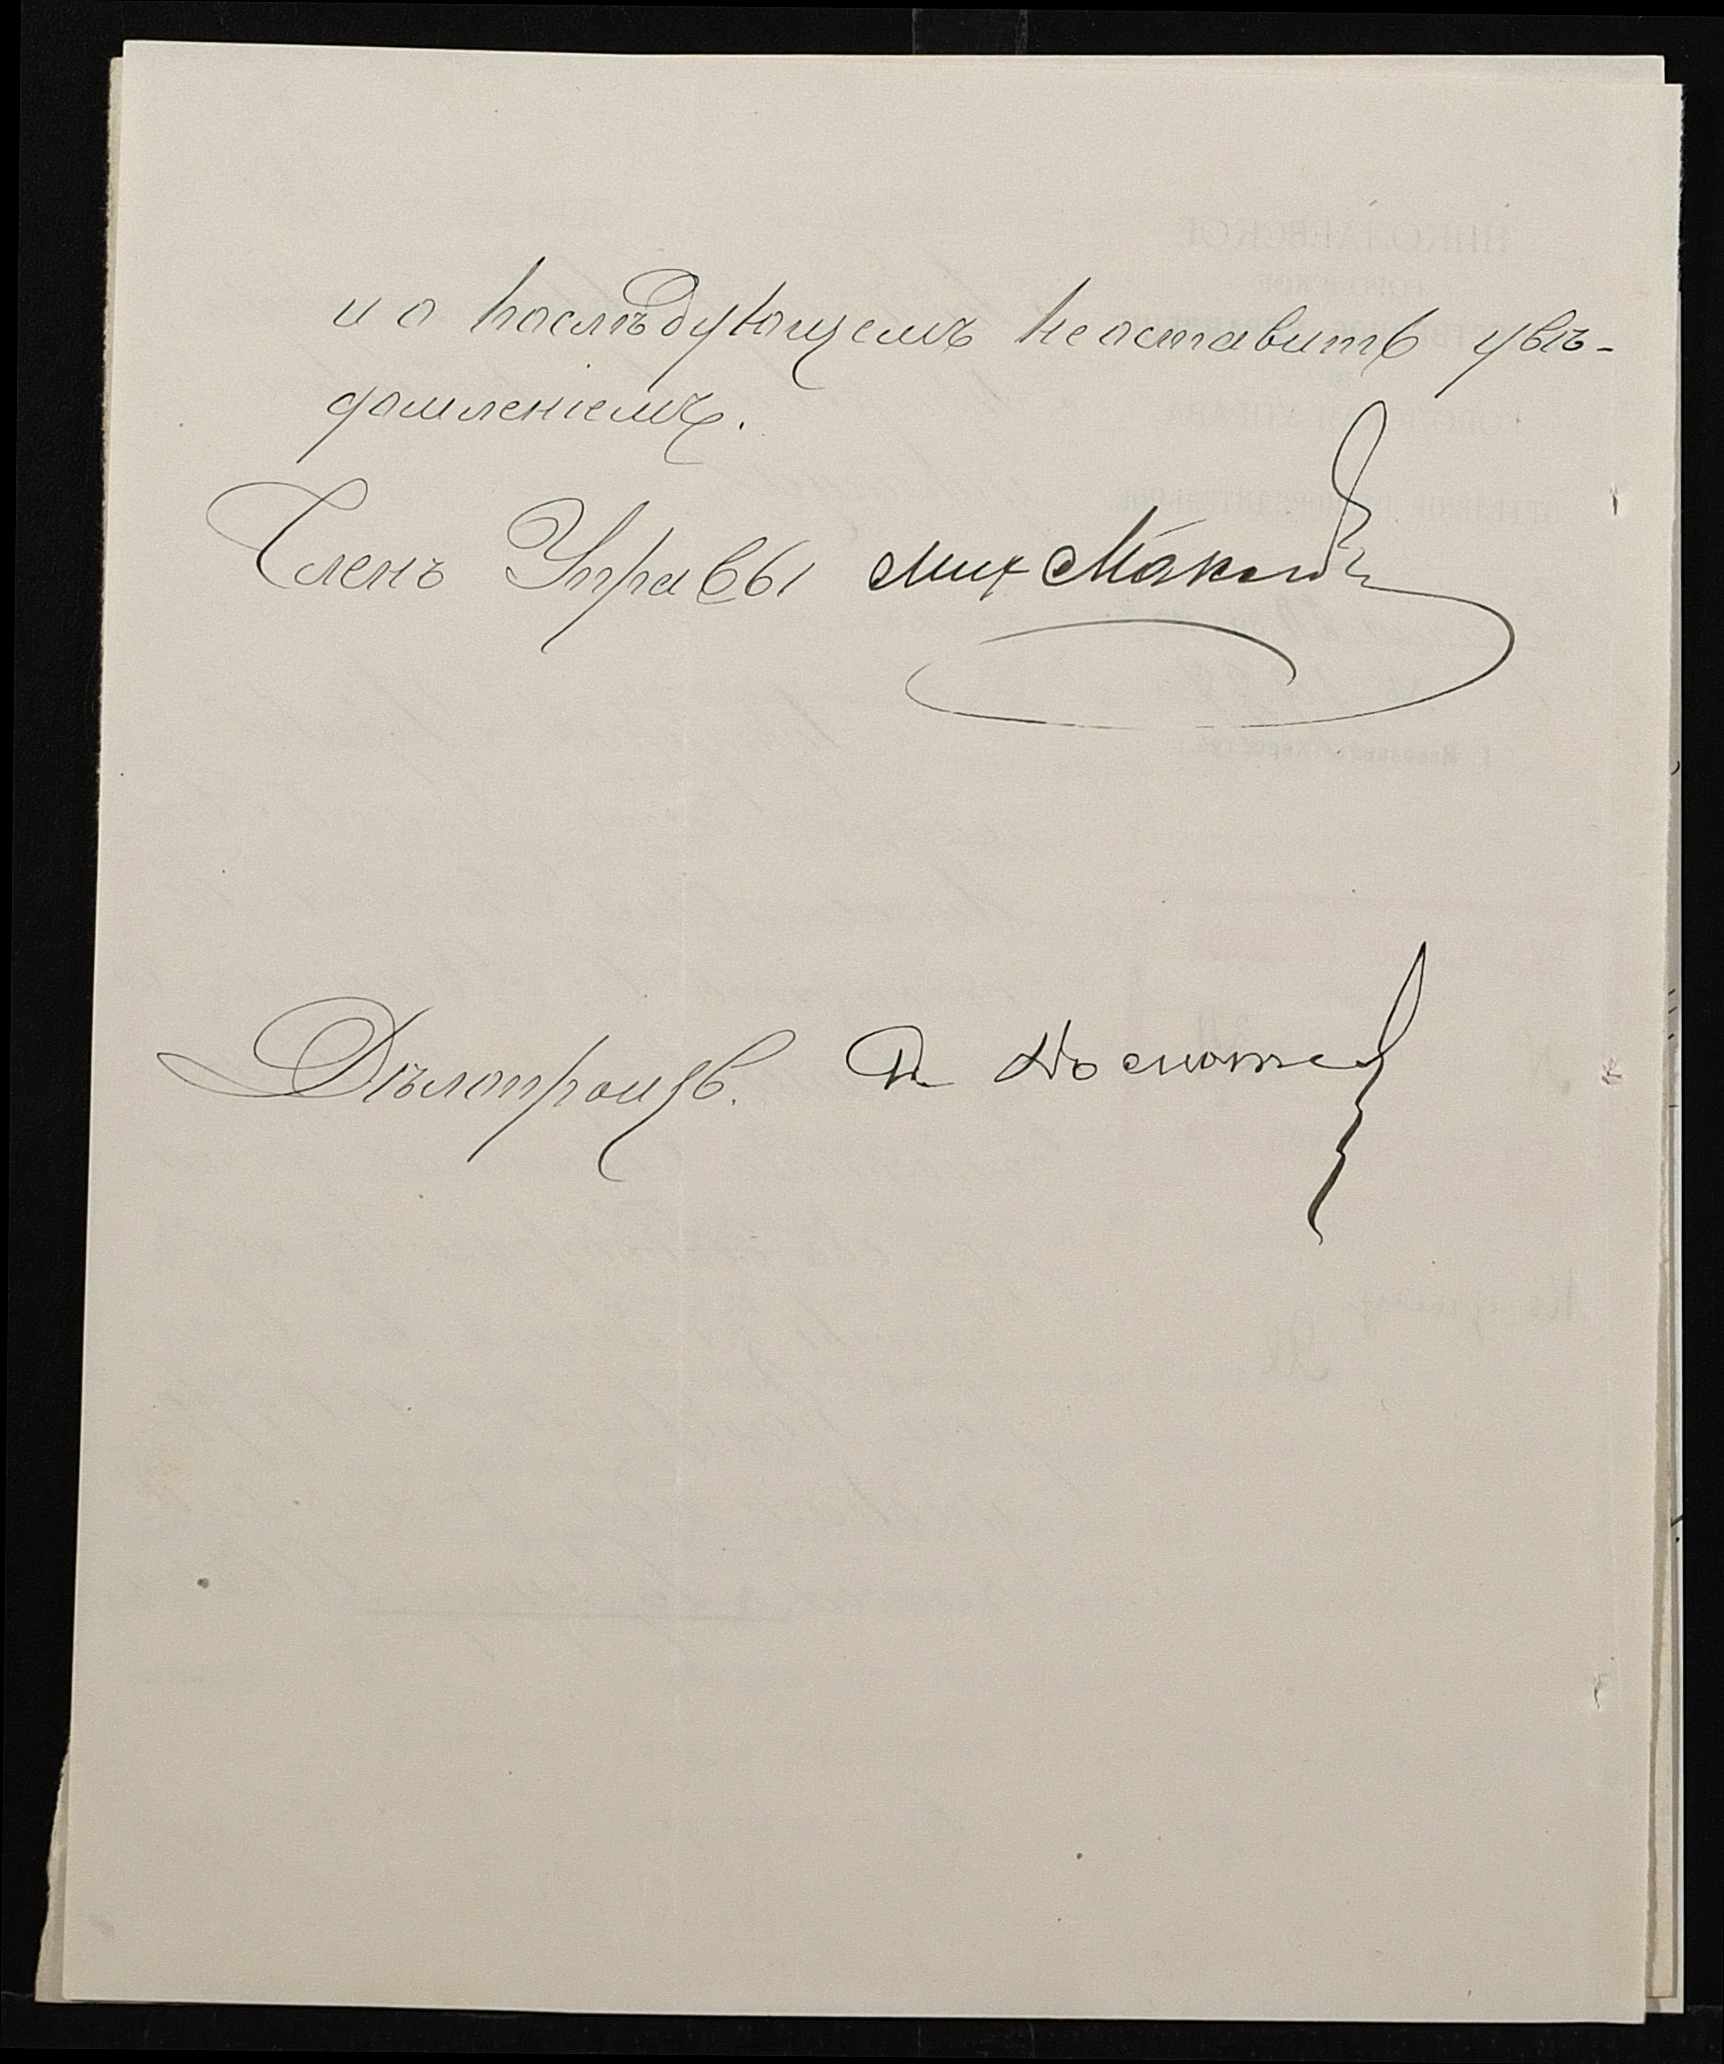 и о послѣдующемъ не оставить увѣ-
домленіемъ.
Членъ Управы Мих
Дѣлопроизв.